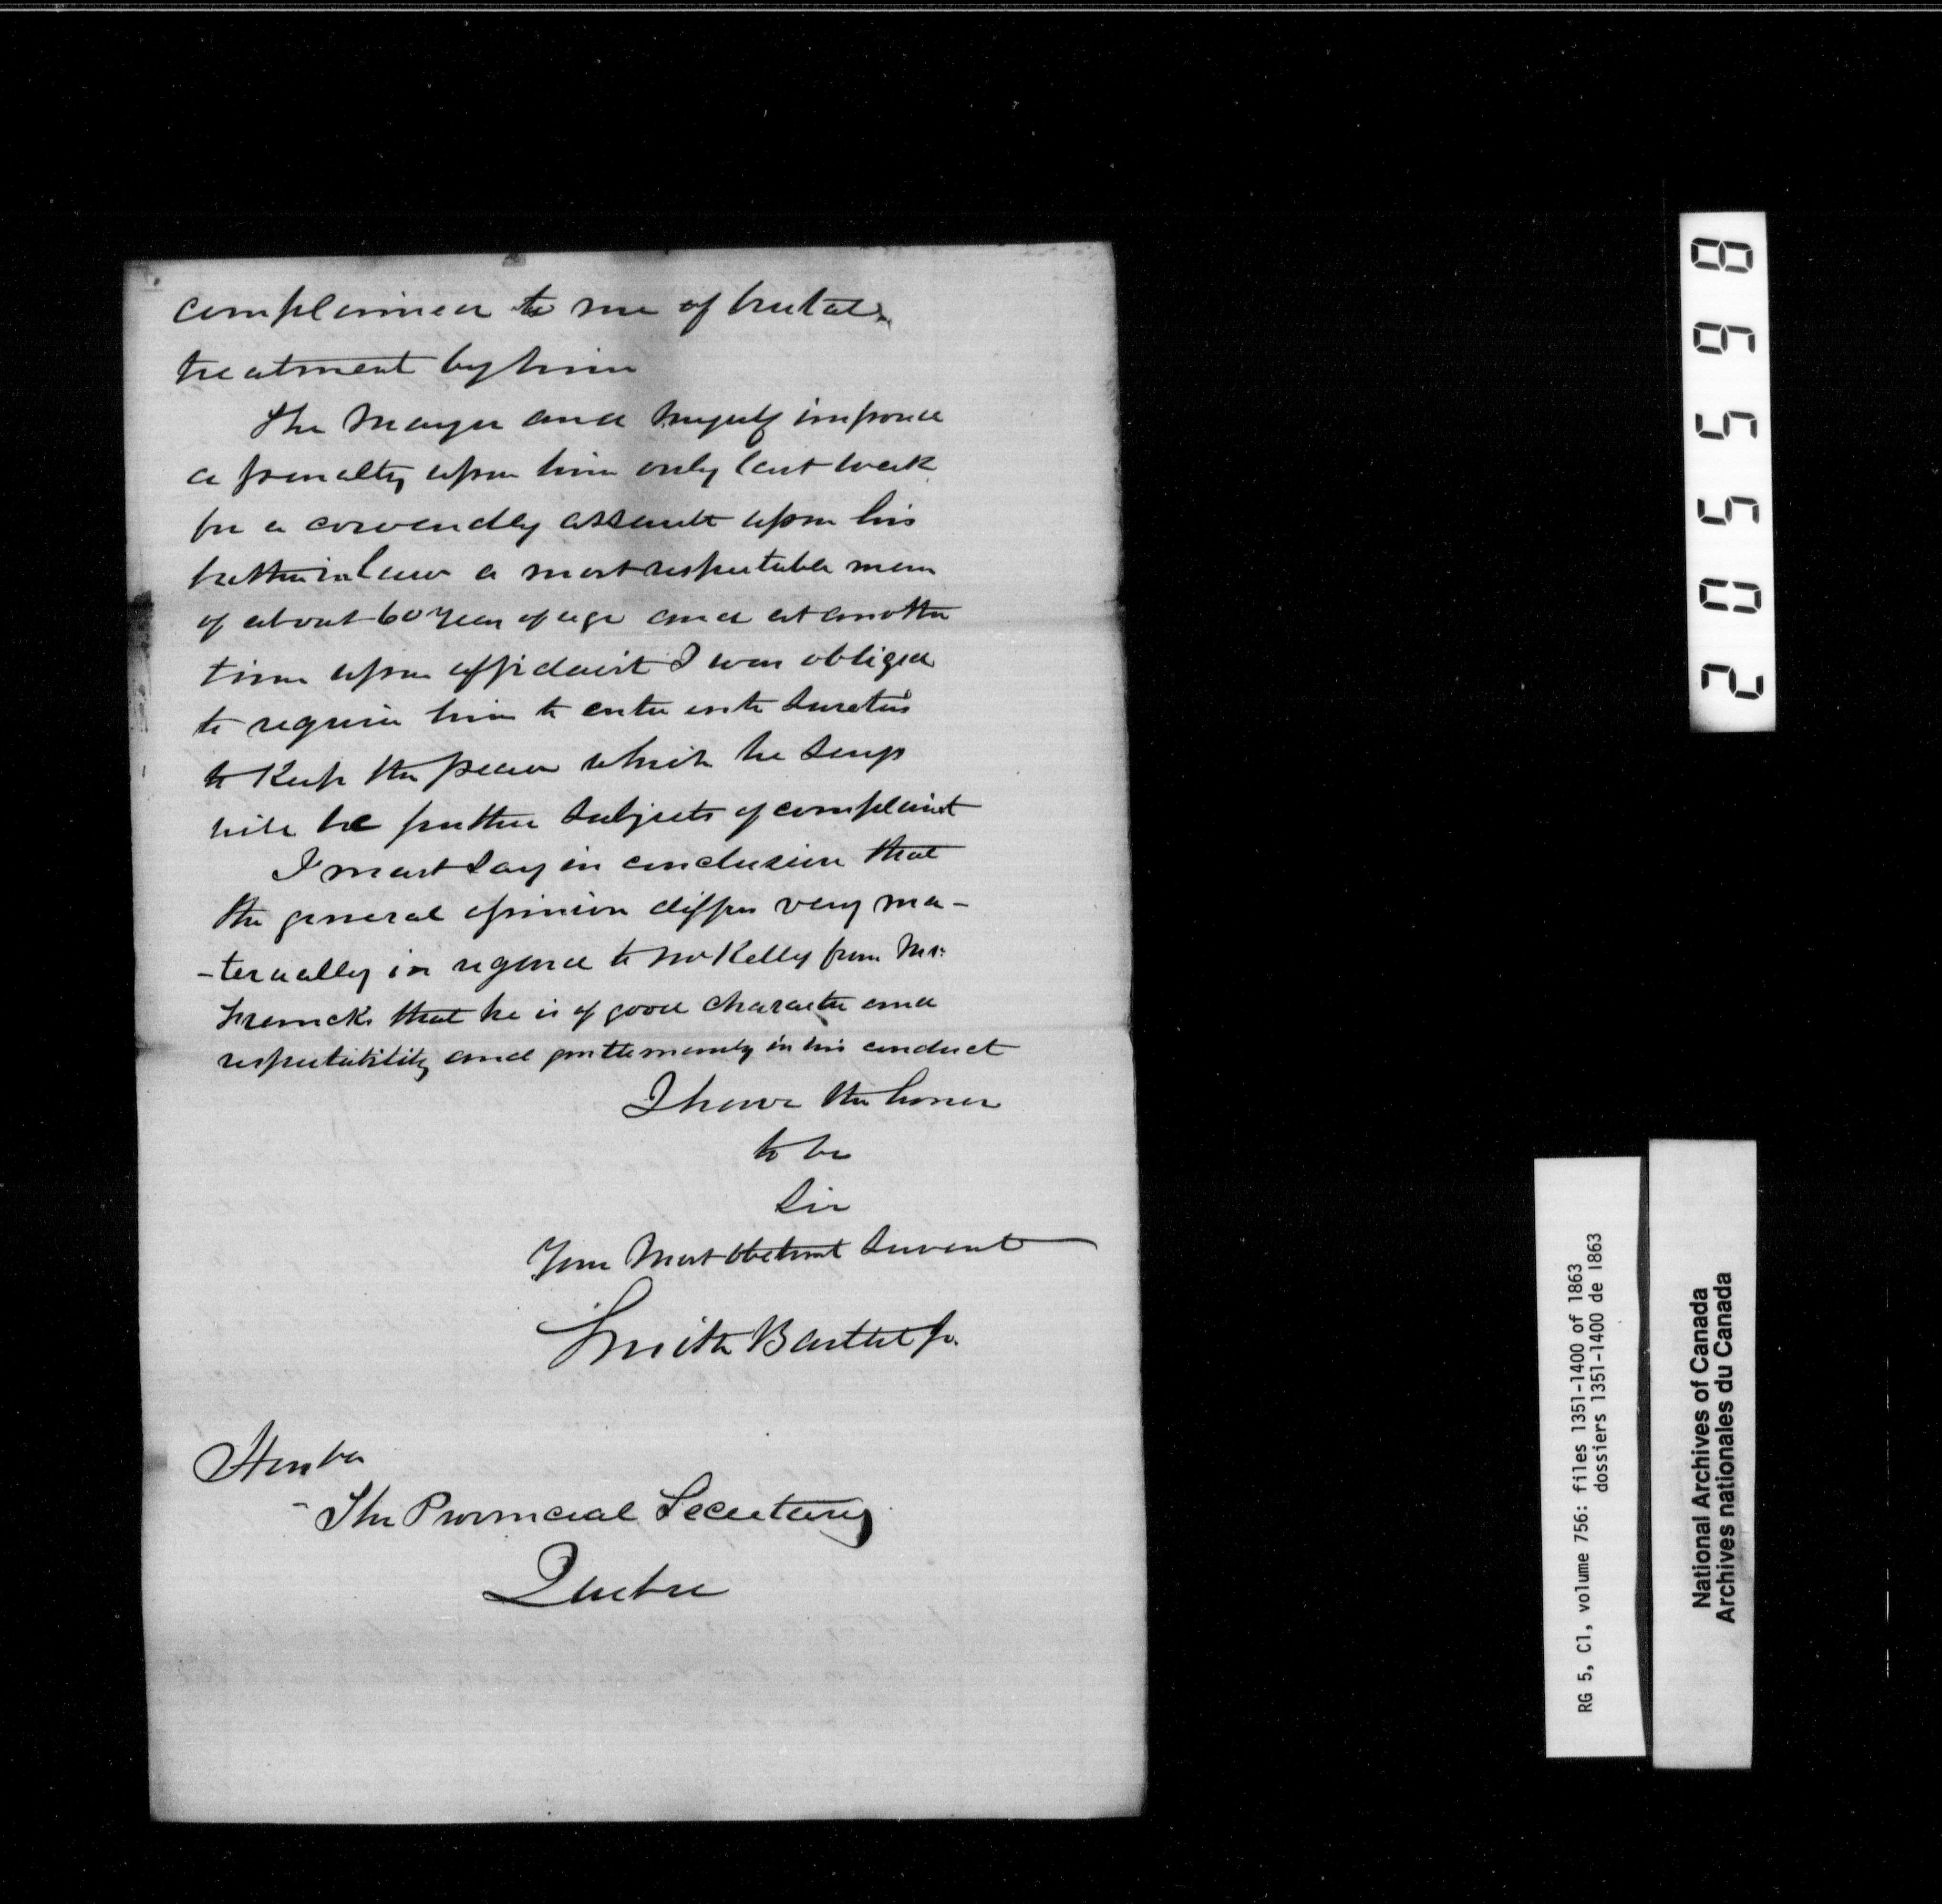 complained to me of brutal
treatment by him
The Mayor and Myself imposed
a penalty upon him only last week
for a cowardly assault upon his
father in Law a most respectable man
of about 60 Years of age and at another
time upon affidavit I was obliged
to require him to enter into Sureties
to Keep the peace which he Says
will be further Subjects of complaint
I must Say in conclusion that
the general opinion differs very ma-
-terially in regard to Mr Kelly from Mr.
that he is of good character and
respectability and gentlemanly in his conduct
I have the honor
to be
Sir
Your Most Obedient Servant
Smith Bartlet
Honble
- The Provincial Secretary
Quebec
865502
RG 5, C1, volume 756: files 1351-1400 of 1863
dossiers 1351-1400 de 1863
National Archives of Canada
Archives nationales du Canada